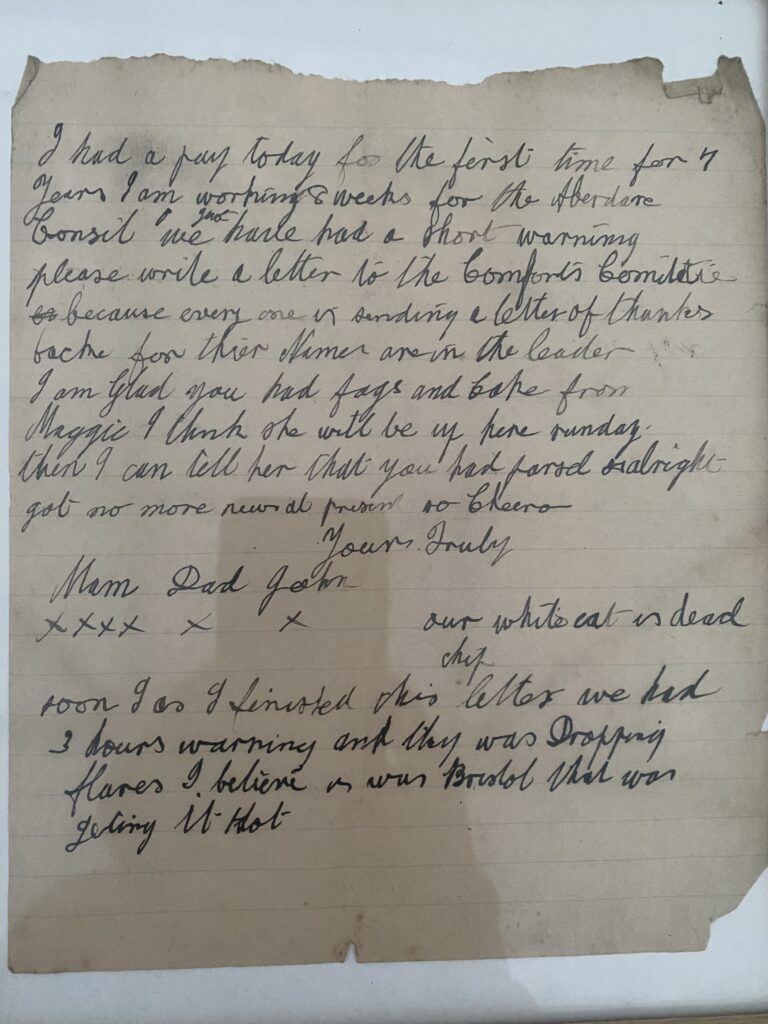 I had a pay today for the first time for 7
Years I am working 8 weeks for the Aberdare
Consil we just have had a short warning
please write a letter to the Comforts Comittie
because every one is sending a letter of thanks
backe for thier Names are in the leader
I am Glad you had fags and Cake from
Maggie I think she will be up here sunday.
then I can tell her that you had parsel alright
got no more news at present so Cheero
Yours Truly
Mam Dad John
xxxx x x
our white cat is dead
chip
soon I as I finished this letter we had
3 hours warning and they was Dropping
flares I believe is was Bristol that was
geting it Hot